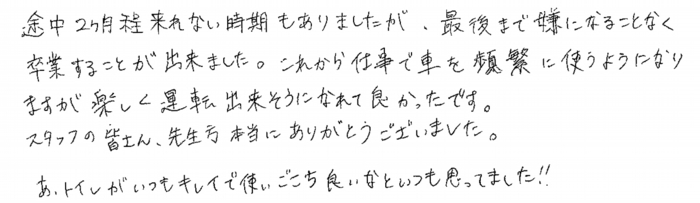 途中2ヶ月程来れない時期もありましたが、最後まで嫌になることなく
卒業することが出来ました。これから仕事で車を頻繁に使うようになり
ますが楽しく運転出来そうになれて良かったです。
スタッフの皆さん、先生方本当にありがとうございました。
あ、トイレがいつもキレイで使いごこち良いなといつも思ってました!!